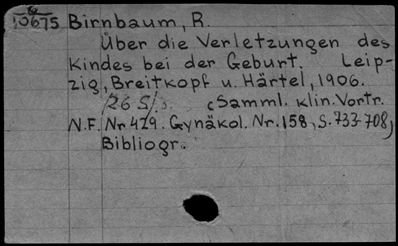 10675 Birnbaum, R.
Über die Verletzungen des
Kindes bei der Geburt. Leip-
zig, Breitkopf u. Härtel, 1906.
26 S. (Samml. klin. Vortr.
N.F. Nr 429. Gynäkol. Nr. 158, S. 733-708)
Bibliogr.